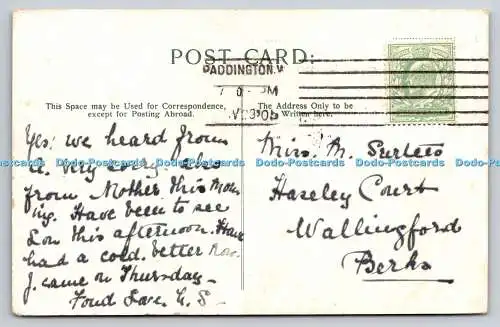 POST CARD:
PADDINGTON.W
This Space may be Used for Correspondence,
except for Posting Abroad.
The Address Only to be
Written here.
Yes. we heard from
very
from Mother this morn
ing. Have been to see
Lou this afternoon. Have
had a cold. better now.
J. came on Thursday-
Fond Love.
Dodo-Postcards Dodo-Postcards Dodo-Postcards Dodo-Postcards Dodo-Postcards
Miss. M. Surtees
Haseley Court
Wallingford
Berks